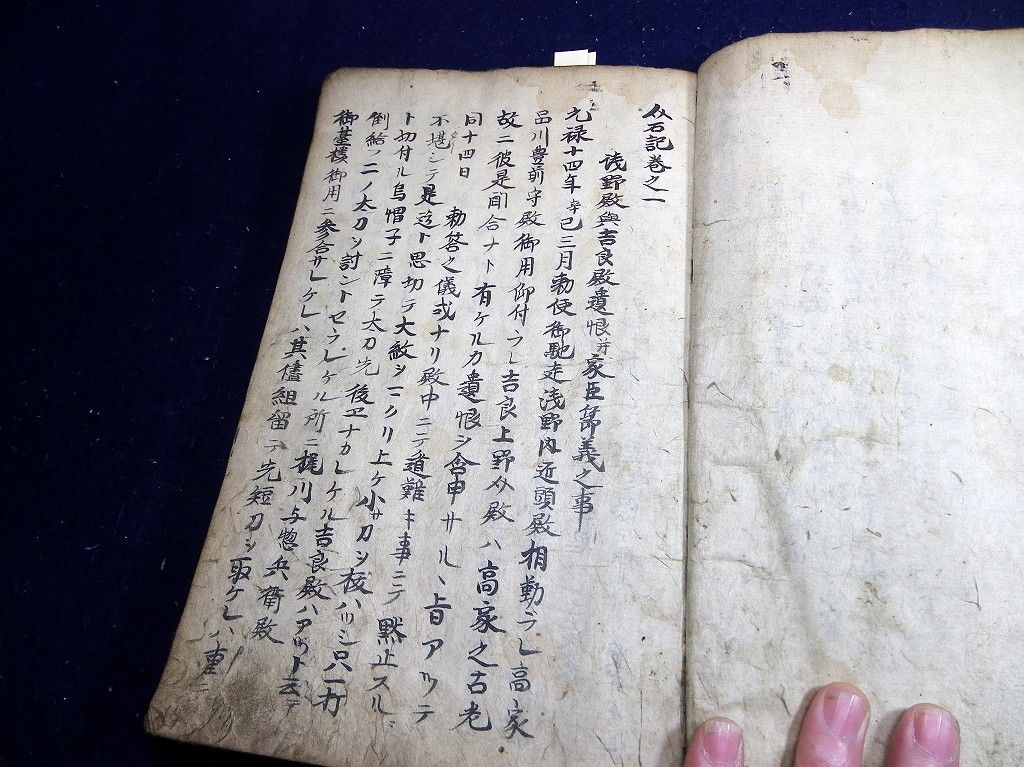 介石記巻之一
浅野殿與吉良殿遺恨并家臣節義之事
元禄十四年辛巳三月勅使御馳走浅野内近頭殿相勤ラレ高家
品川豊前守殿御用仰付ラレ吉良上野介殿ハ高家之古老
故ニ彼是聞合ナト有ケルカ遺恨ヲ含申サル、旨アツテ
同十四日 勅答之儀式ナリ殿中ニテ遁難キ事ニテ黙止スルニ
不堪シテ是迄ト思切テ大紋ヲ一クリ上ケ小サ刀ヲ抜ハツシ只一打
ト切付ル烏帽子ニ障テ太刀先後ヱナカレケル吉良殿ハアツト云テ
倒給フ二ノ太刀ヲ討ントセラレケル所ニ梶川与惣兵衛殿
御臺様御用ニ参合サレケレハ其儘組留テ先短刀ヲ取ケレハ重